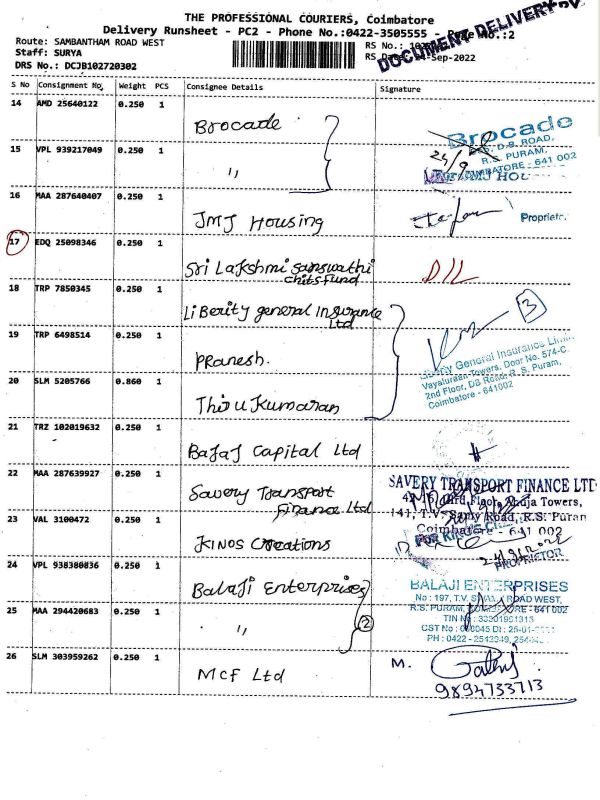 THE PROFESSIONAL COURIERS, Coimbatore
Delivery Runsheet - PC2 - Phone No.:0422-3505555 - Page No.:2
DOCUMENT DELIVERY
Route: SAMBANTHAM ROAD WEST
Staff: SURYA
DRS No.: DCJB102720302
RS No.:
RS Date: -Sep-2022
S No Consignment No. Weight PCS Consignee Details Signature
14 AMD 25640122 0.250 1 Brocade
Brocade
D.B. ROAD,
R.S. PURAM,
COIMBATORE - 641 002
15 VPL 939217049 0.250 1 "
24/9
16 MAA 287640407 0.250 1 JMJ Housing
Proprietor
17 EDQ 25098346 0.250 1 Sri Lakshmi Sarswathi
Chits Fund
D/L
18 TRP 7850345 0.250 1 Liberity general Insurance
Ltd
3
19 TRP 6498514 0.250 1 Pranesh.
General Insurance
Vayaluraan Towers, Door No. 574-C.
2nd Floor, DB Road, R. S. Puram,
Coimbatore - 641002
20 SLM 5205766 0.860 1 Thirukumaran
21 TRZ 102019632 0.250 1 Bajaj Capital Ltd
22 MAA 287639927 0.250 1 Savery Transport
Finance Ltd
SAVERY TRANSPORT FINANCE LTD
Floor, Towers,
141, T.V. Samy Road, R.S. Puram
Coimbatore - 641 002
23 VAL 3100472 0.250 1 Kinos Creations
PROPRIETOR
24 VPL 938380836 0.250 1 Balaji Enterprises
BALAJI ENTERPRISES
No : 197, T.V. SAMY ROAD WEST,
R.S. PURAM, COIMBATORE - 641 002
25 MAA 294420683 0.250 1 "
2
TIN No : 33201961313
PH : 0422 -
26 SLM 303959262 0.250 1 MCF Ltd
M.
9894733713